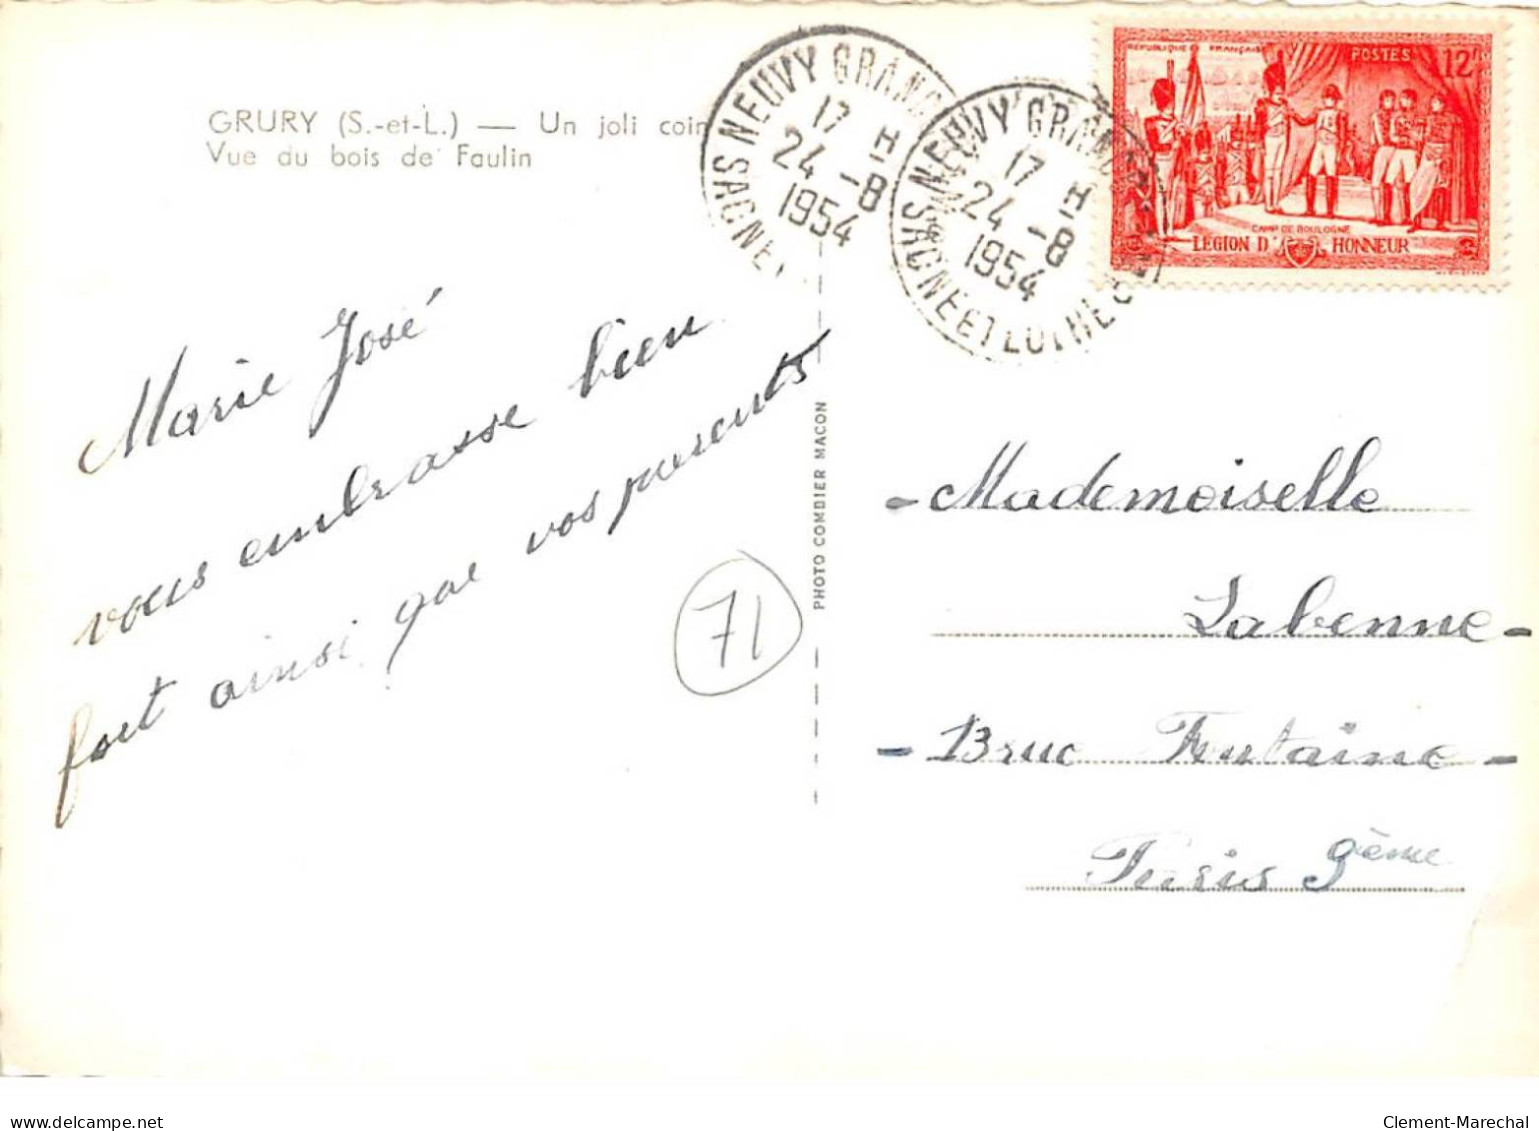 GRURY (S.-et-L.) — Un joli coin
Vue du bois de Faulin
NEUVY GRAND
17 H
24 -8
1954
SAONE
NEUVY GRAND
17 H
24 -8
1954
SAONE ET LOIRE
REPUBLIQUE FRANÇAISE
POSTES
12F
CAMP DE BOULOGNE
LEGION D' HONNEUR
Marie José
vous embrasse bien
fort ainsi que vos parents
71
PHOTO COMBIER MACON
- Mademoiselle
Labenne -
- 13 rue Fontaine -
Paris 9ème
Clement-Marechal